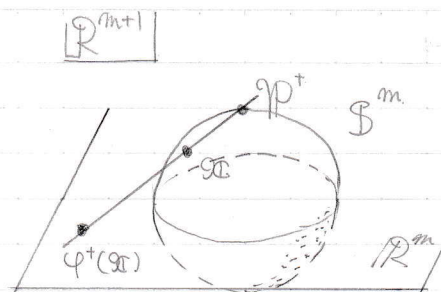 ℝ^{m+1}
p⁺
𝕊^m
x
φ⁺(x)
ℝ^m